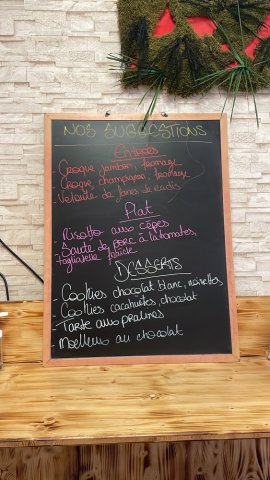 NOS SUGGESTIONS
Entrées
- Croque jambon, fromage
- Croque, champignon, fromage
- Velouté de fanes de radis
Plat
- Risotto aux cèpes
- Sauté de porc à la tomates,
tagliatelle fraîche
DESSERTS
- Cookies chocolat blanc, noisettes
- Cookies cacahuètes, chocolat
- Tarte aux pralines
- Moelleux au chocolat